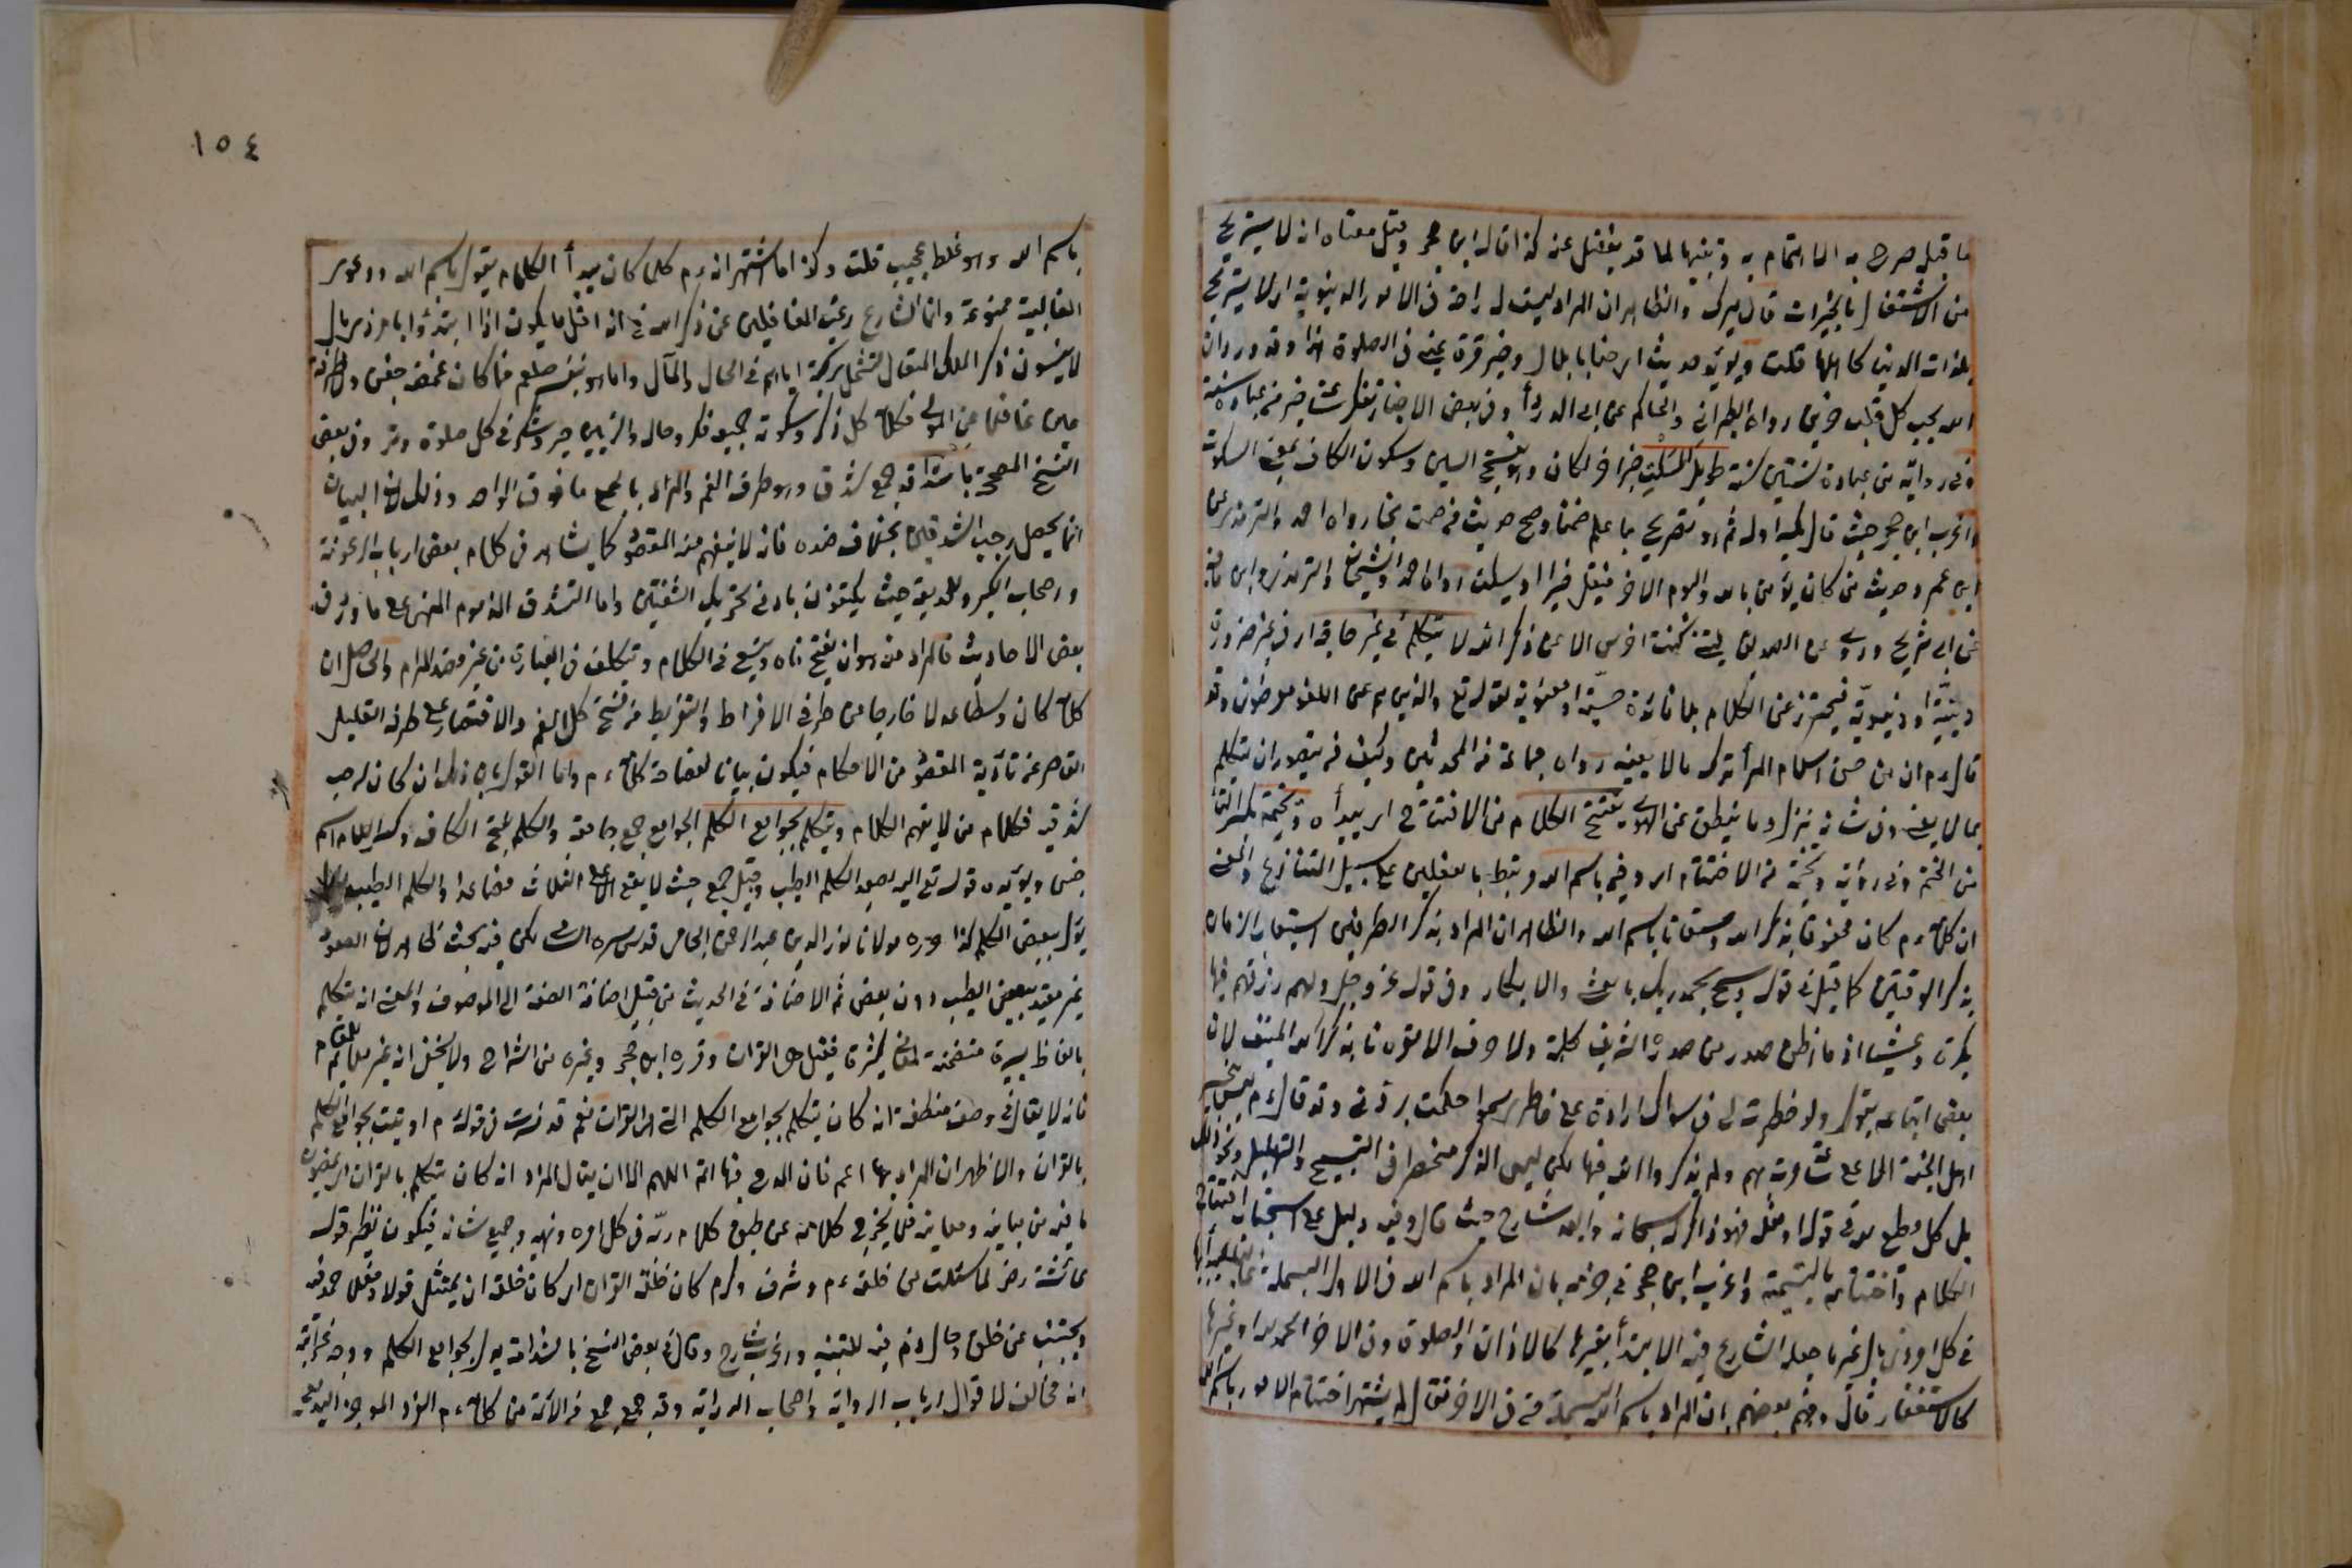 ما قبله صرح به للاهتمام به وتنبيها لما قد يغفل عنه كذا قاله ابن حجر وقيل معناه انه لا يستريح
من الاشتغال بالخيرات قال ميرك والظاهر ان المراد ليست له راحة في الامور الدنيوية اي لا يستريح
بلذات الدنيا كاهلها قلت ويؤيده حديث ارحنا يا بلال وخبر قرة عيني في الصلوة هذا وقد ورد ان
الله يحب كل قلب حزين رواه الطبراني والحاكم عن ابي الدرداء وفي بعض الاخبار تفكر ساعة خير من عبادة سنة
وفي رواية من عبادة ستين سنة طويل السكت خبر اخر لكان وهو بفتح السين وسكون الكاف بمعنى السكوت
واغرب ابن حجر حيث قال بكسر اوله ثم هو تصريح بما علم ضمنا وصح حديث من صمت نجا رواه احمد والترمذي عن
ابن عمر وحديث من كان يؤمن بالله واليوم الاخر فليقل خيرا او ليسكت رواه احمد والشيخان والترمذي وابن ماجه
عن ابي شريح وروي عن الصديق ليتني كنت اخرس الا عن ذكر الله لا يتكلم في غير حاجة اي في غير ضرورة
دينية او دنيوية فيحترز عن الكلام بلا فائدة حسية او معنوية لقوله تع والذين هم عن اللغو معرضون وقد
قال ءم ان من حسن اسلام المرء تركه ما لا يعنيه رواه جماعة من المحدثين وكيف يتصور ان يتكلم
بما لا يعنيه وفي شانه نزل وما ينطق عن الهوى يفتتح الكلام من الافتتاح اي يبدأه ويختمه بكسر التاء
من الختم وفي رواية ويختتمه من الاختتام اي وفيه باسم الله مرتبط بالفعلين على سبيل التنازع والمعنى
ان كلامه ءم كان محفوفا بذكر الله ومستعانا باسم الله والظاهر ان المراد بذكر الطرفين استيعاب الزمان
بذكر الوقتين كما قيل في قوله وسبح بحمد ربك بالعشي والابكار وفي قوله عز وجل ولهم رزقهم فيها
بكرة وعشيا اذ ما اظن صدر من صدره الشريف كلمة ولا حرف الا مقرونا بذكر الله المنيف لان
بعض اتباعه يقول ولو خطرت لي في سواك ارادة على خاطري سهوا حكمت بردتي وقد قال ءم ليس يتحسر
اهل الجنة الا على ساعة مرت بهم ولم يذكروا الله فيها لكن ليس الذكر منحصرا في التسبيح والتهليل ونحو ذلك
بل كل مطيع لله في قوله او فعله فهو ذاكر له سبحانه وابعد شارح حيث قال وفيه دليل على استحباب افتتاح
الكلام واختتامه بالتسمية واغرب ابن حجر في جزمه بان المراد باسم الله في الاول البسملة
في كل امر ذي بال غير ما جعل الشارع فيه الابتداء بغيرها كالاذان والصلوة وفي الاخر الحمد لله او غيرها
كالاستغفار قال وفهم بعضهم ان المراد باسم الله البسملة حتى في الاخر فقال لم يشتهر اختتام الامور باسم الله
١٥٤
باسم الله وهو غلط عجيب قلت وكذا ما اشتهر انه ءم كلما كان يبدأ الكلام يقول باسم الله ودعوى
الغالبية ممنوعة وانما الشارع رغب الغافلين عن ذكر الله في انه اقل ما يكون اذا ابتدؤا بامر ذي بال
لا ينسون ذكر الملك المتعال لتشمل بركته اياهم في الحال والمآل واما هو بنفسه صلعم فما كان غمض جفن ولا طرفة
عين غافلا عن المولى فكلامه كله ذكر وسكوته جميعه فكر وحاله دائر بين صبر وشكر في كل حلوة ومر وفي بعض
النسخ المصححة باشداقه جمع شدق وهو طرف الفم والمراد بالجمع ما فوق الواحد وذلك لان البيان
انما يحصل برحب الشدقين بخلاف ضده فانه لا ينفهم منه المقصود كما يشاهد في كلام بعض ارباب الرعونة
واصحاب الكبر والمديقة حيث يكتفون بادنى تحريك الشفتين واما التشدق المذموم المنهي على ما ورد في
بعض الاحاديث فالمراد منه هو ان يفتح فاه ويتسع في الكلام ويتكلف في العبارة من غير قصد المرام والحاصل ان
كلامه كان وسطا عدلا خارجا عن طرفي الافراط والتفريط من فتح كل الفم والاقتصار على طرفه القليل
القاصر عن تأدية المقصود من الاحكام فيكون بيانا لفصاحة كلامه ءم واما القول بان ذلك ان كان لرحب
شدقيه فكلام من لا يفهم الكلام ويتكلم بجوامع الكلم الجوامع جمع جامعة والكلم بفتح الكاف وكسر اللام اسم
جنس ويؤيده قوله تع اليه يصعد الكلم الطيب وقيل جمع حيث لا يقع الا على الثلاث فصاعدا والكلم الطيب
يؤل ببعض الكلم كذا حرره مولانا نور الدين عبد الرحمن الجامي قدس سره السامي لكن فيه بحث ظاهر لان الصعود
غير مقيد ببعض الطيب دون بعض ثم الاضافة في الحديث من قبيل اضافة الصفة الى الموصوف والمعنى انه يتكلم
بالفاظ يسيرة متضمنة لمعان كثيرة فقيل هي القرآن وقرره ابن حجر وغيره من الشراح ولا يخفى انه غير ملايم للمقام
فانه لا يقال في وصف منطقه انه كان يتكلم بجوامع الكلم التي هي القرآن نعم قد فسرت في قوله ءم اوتيت بجوامع الكلم
بالقرآن والاظهر ان المراد بها اعم فان المدح فيها اتم اللهم الا ان يقال المراد انه كان يتكلم بالقرآن اي بمضمون
ما فيه من مبانيه ومعانيه فلا يخرج كلامه عن طبق كلام ربه في كل امره ونهيه وجميع شانه فيكون نظير قول
عائشة رضي لما سئلت عن خلقه ءم وشرف وكرم كان خلقه القرآن اي كان خلقه ان يمتثل قولا وفعلا حمد فيه
ويجتنب عن خلق وحال ذم فيه للتنبيه واغرب شارح وقال في بعض النسخ باشداقه بدل بجوامع الكلم ووجه غرابته
انه مخالف لاقوال ارباب الرواية واصحاب الدراية وقد جمع جمع من الائمة من كلامه ءم المفرد الموجز البديع